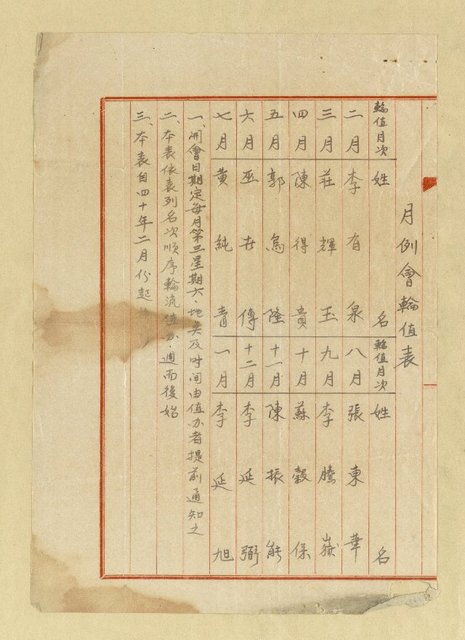 月例會輪值表
輪值月次 姓 名 輪值月次 姓 名
二月 李有泉 八月 張東華
三月 莊輝玉 九月 李騰嶽
四月 陳得貴 十月 蘇穀保
五月 郭為隆 十一月 陳振能
六月 巫世傳 十二月 李延弼
七月 黃純青 一月 李延旭
一、開會日期定每月第三星期六、地点及时间由值办者提前通知之
二、本表依表列名次順序輪流值办、週而後始
三、本表自四十年二月份起